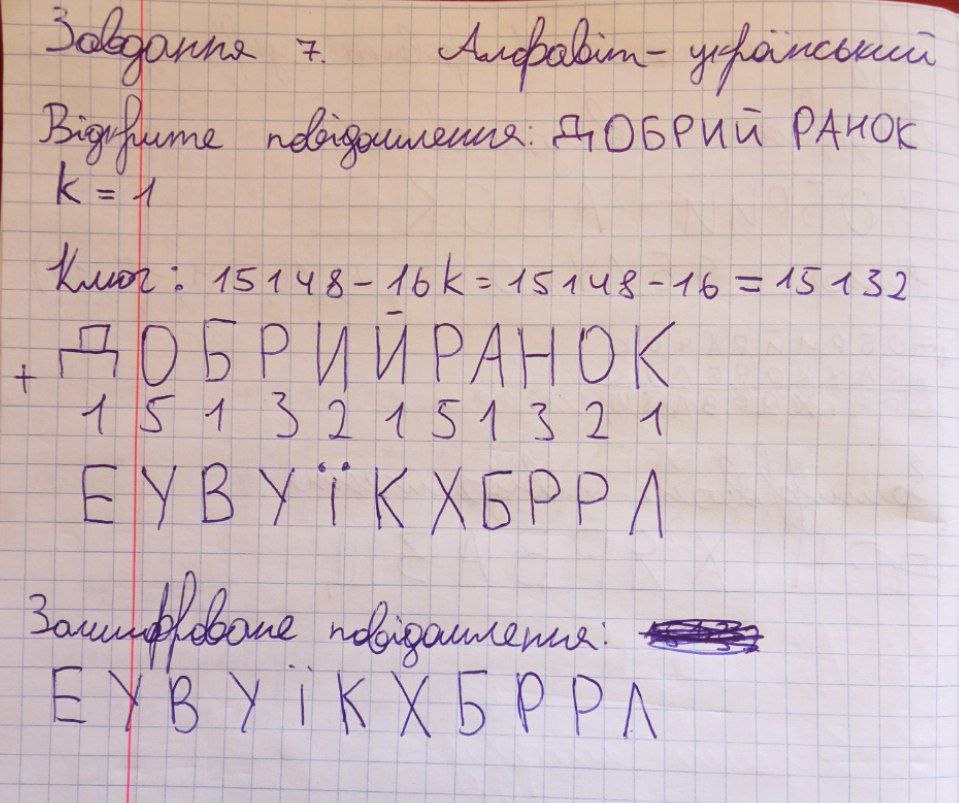 Завдання 7. Алфавіт - український
Відкрите повідомлення: ДОБРИЙ РАНОК
k = 1
Ключ: 15148 - 16k = 15148 - 16 = 15132
ДОБРИЙРАНОК
+ 1 5 1 3 2 1 5 1 3 2 1
ЕУВУЇКХБРРЛ
Зашифроване повідомлення:
ЕУВУЇКХБРРЛ